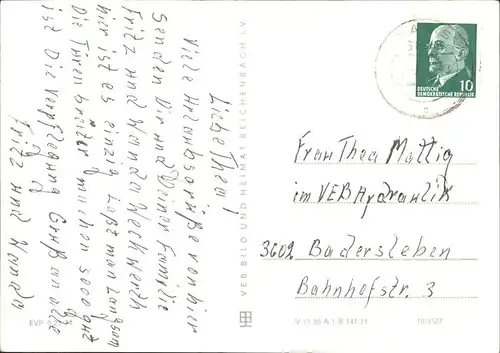 Liebe Thea!
Viele Urlaubsgrüße von hier
senden Dir und Deiner Familie
Fritz und Wanda
hier ist es einzig Laßt man langsam
Die Türen hinter machen so gut
ist die Verpflegung Gruß an alle
Fritz und Wanda
VEB BILD UND HEIMAT REICHENBACH I. V.
DEUTSCHE
DEMOKRATISCHE REPUBLIK
10
Frau Thea Mattig
im VEB Hydraulik
3602 Badersleben
Bahnhofstr. 3
EVP
V 11 50 A 1 B 141/71